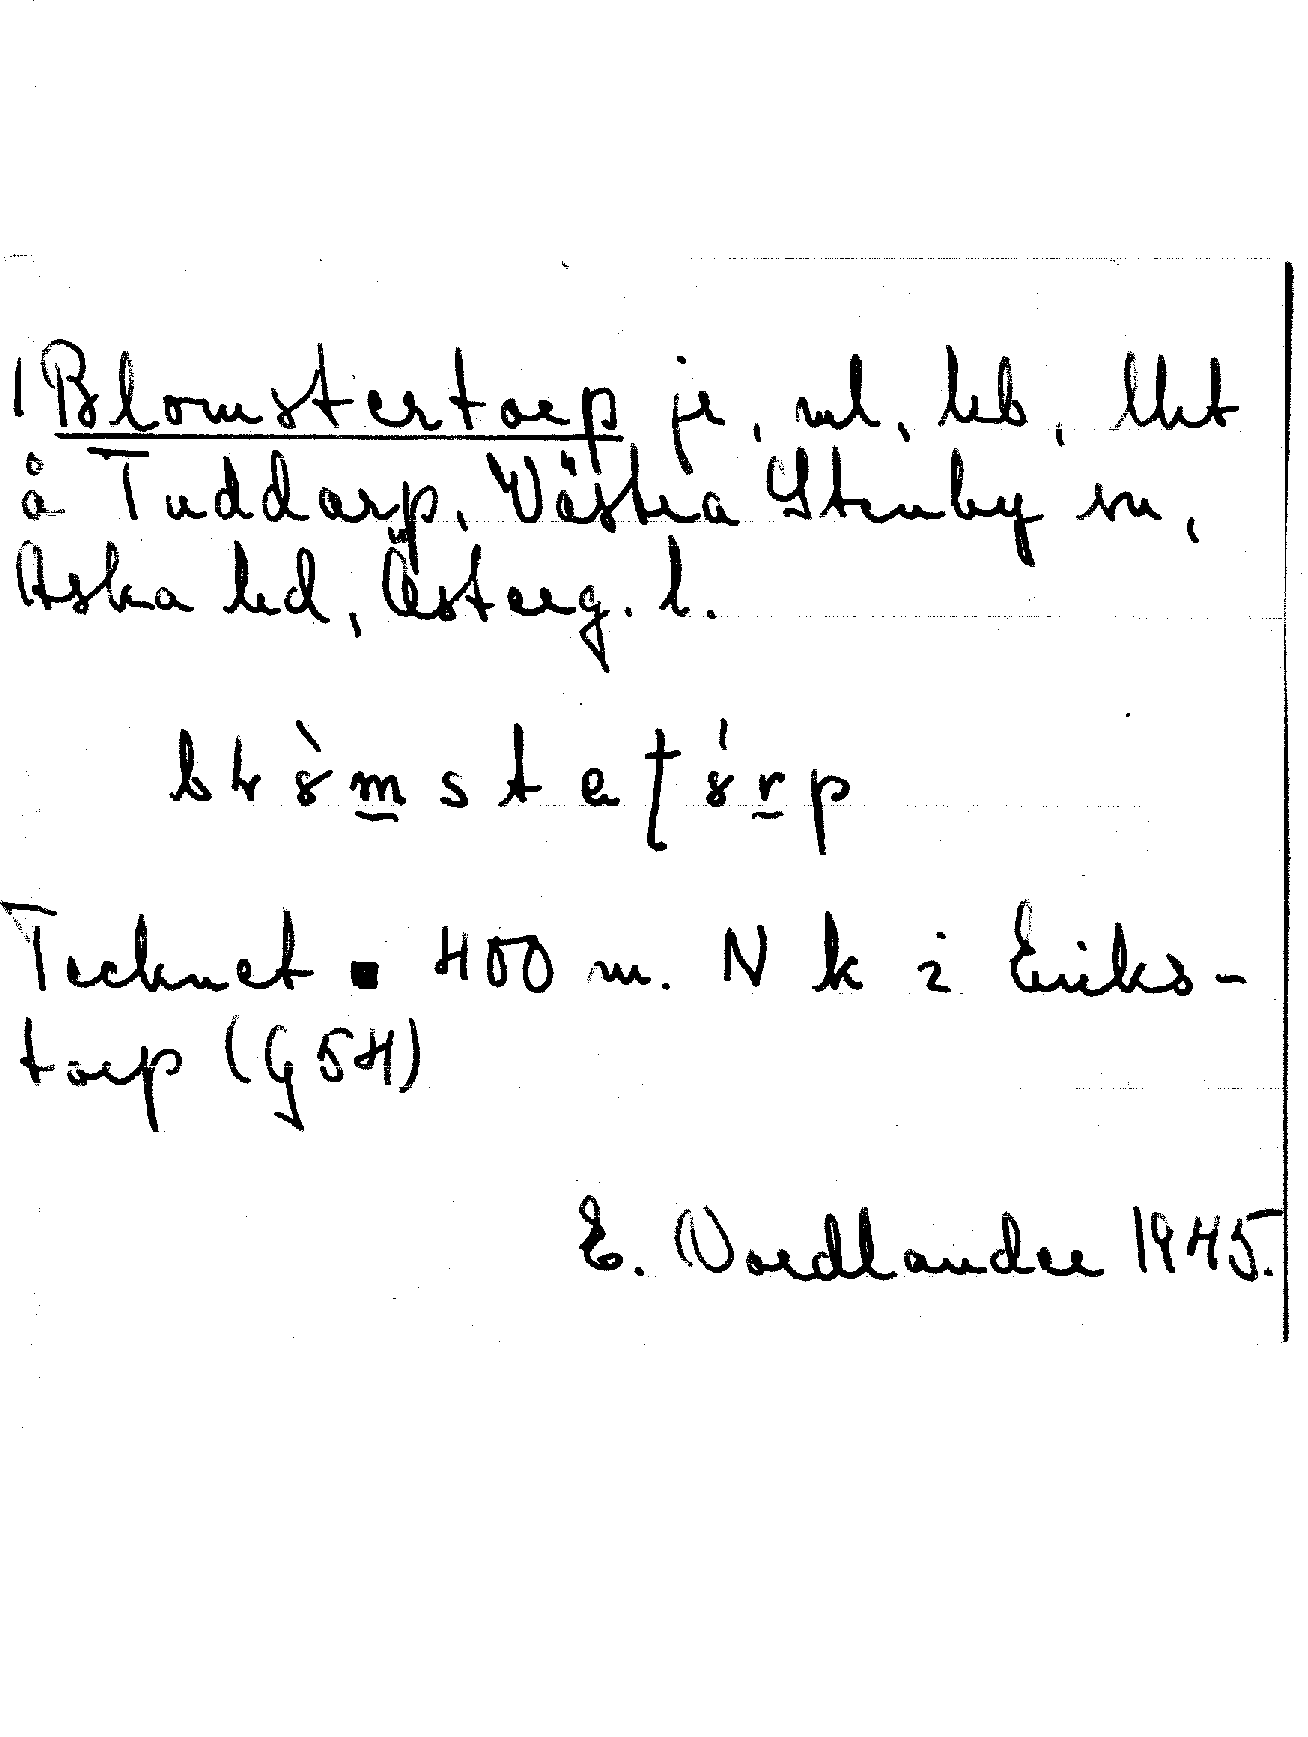 Blomstertorp je, ml, hb, lht
å Tuddarp, Västra Stenby sn,
Aska hd, Österg. l.
Tecknet ■ 400 m. N k i Eriks-
torp (G54)
E. Nordlander 1945.